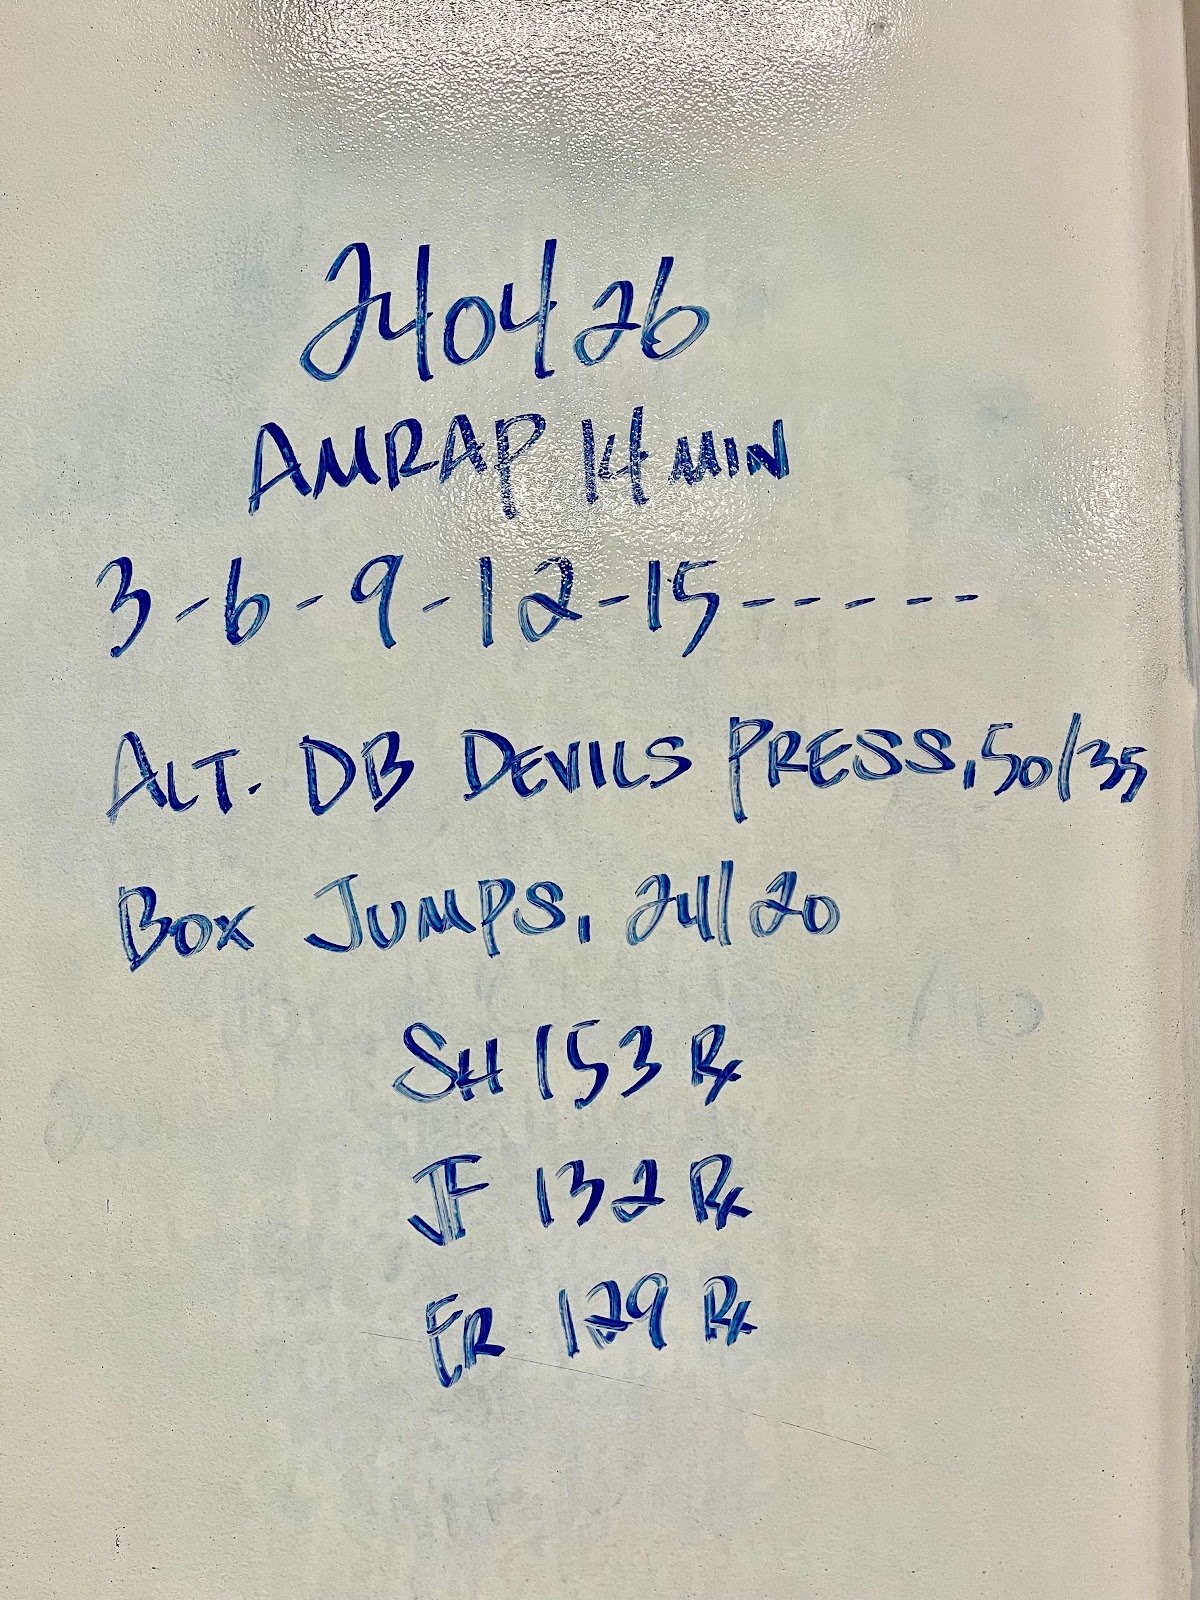 240426
AMRAP 14 MIN
3-6-9-12-15------
ALT. DB DEVILS PRESS, 50/35
BOX JUMPS, 24/20
SH 153 Rx
JF 132 Rx
ER 129 Rx